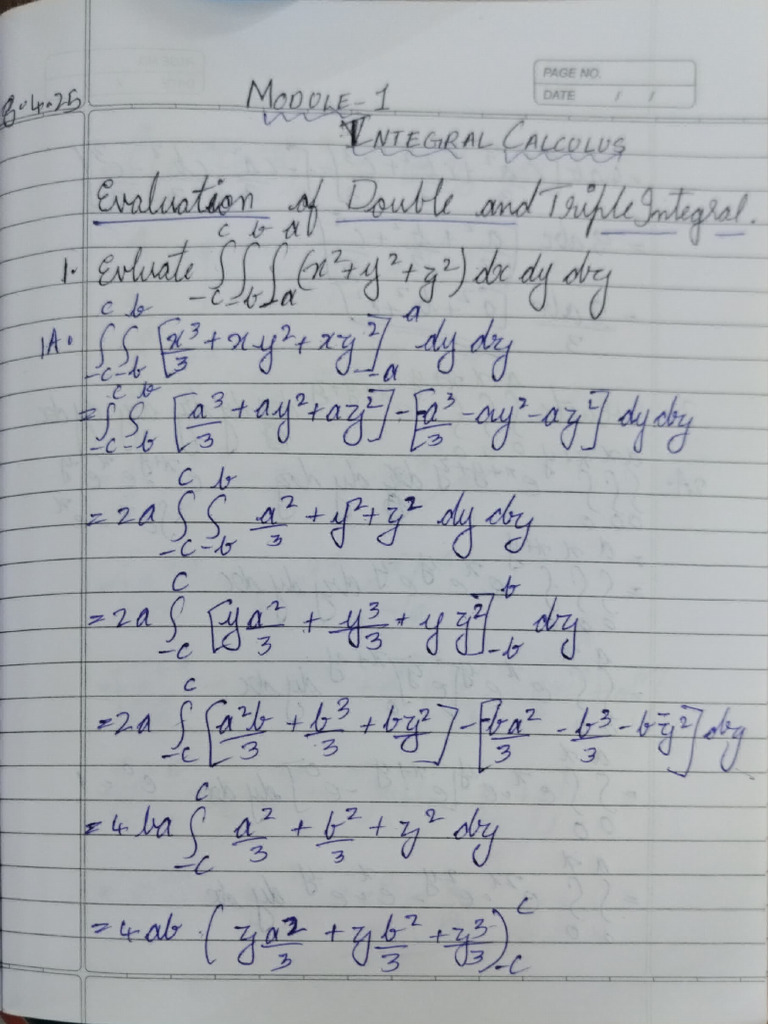 PAGE NO.
DATE / /
8.4.25 MODULE-1
INTEGRAL CALCULUS
Evaluation of Double and Triple Integral.
1. Evluate ∫_{-c}^{c} ∫_{-b}^{b} ∫_{-a}^{a} (x²+y²+z²) dx dy dz
1A. ∫_{-c}^{c} ∫_{-b}^{b} [x³/3 + xy² + xz²]_{-a}^{a} dy dz
= ∫_{-c}^{c} ∫_{-b}^{b} [a³/3 + ay² + az²] - [-a³/3 - ay² - az²] dy dz
= 2a ∫_{-c}^{c} ∫_{-b}^{b} a²/3 + y² + z² dy dz
= 2a ∫_{-c}^{c} [ya²/3 + y³/3 + yz²]_{-b}^{b} dz
= 2a ∫_{-c}^{c} [a²b/3 + b³/3 + bz²] - [-ba²/3 - b³/3 - bz²] dz
= 4ba ∫_{-c}^{c} a²/3 + b²/3 + z² dz
= 4ab (za²/3 + zb²/3 + z³/3)_{-c}^{c}